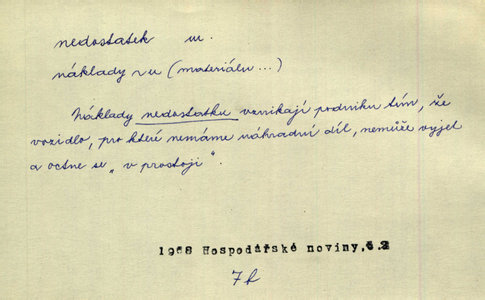 nedostatek m.
náklady z n (materiálu...)
Náklady nedostatku vznikají podniku tím, že
vozidlo, pro které nemáme náhradní díl, nemůže vyjet
a octne se „v prostoji".
1968 Hospodářské noviny, č.2
7f